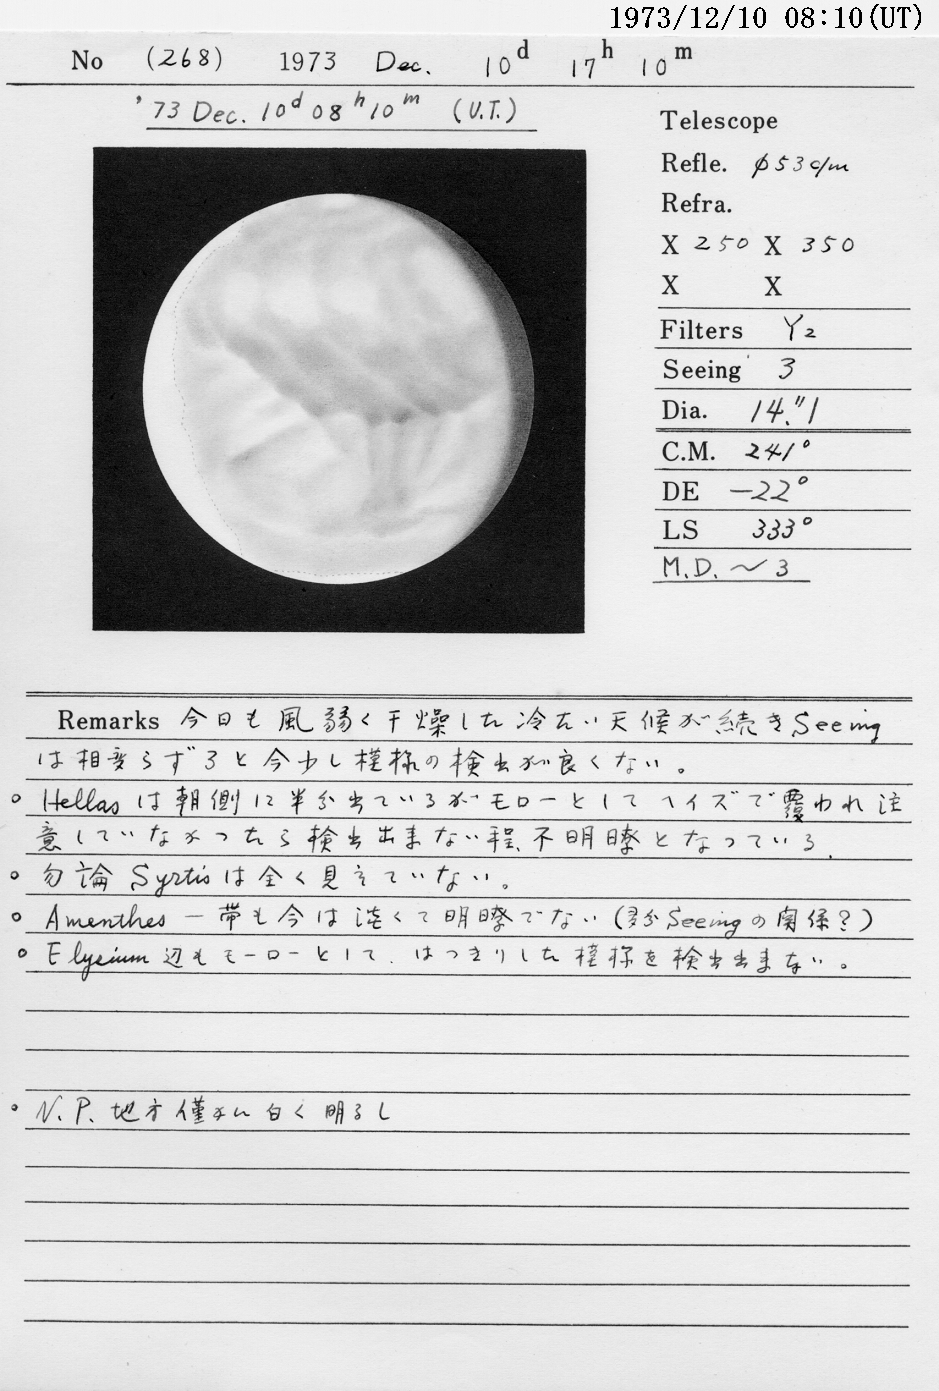 1973/12/10 08:10(UT)
No (268) 1973 Dec. 10d 17h 10m
'73 Dec. 10d 08h 10m (U.T.)
Telescope
Refle. φ53 c/m
Refra.
X 250 X 350
X X
Filters Y2
Seeing 3
Dia. 14."1
C.M. 241°
DE -22°
LS 333°
M.D. ~3
Remarks 今日も風弱く干燥した冷たい天候が続きSeeing
は相変らず3と今少し模様の検出が良くない。
○ Hellasは朝側に半分出ているがモローとしてヘイズで覆われ注
意していなかったら検出出来ない程、不明瞭となっている.
○ 勿論 Syrtisは全く見えていない。
○ Amenthes 一帯も今は淡くて明瞭でない(多分Seeingの関係?)
○ Elysium 辺もモーローとして、はっきりした模様を検出出来ない。
○ N.P. 地方僅かに白く明るし